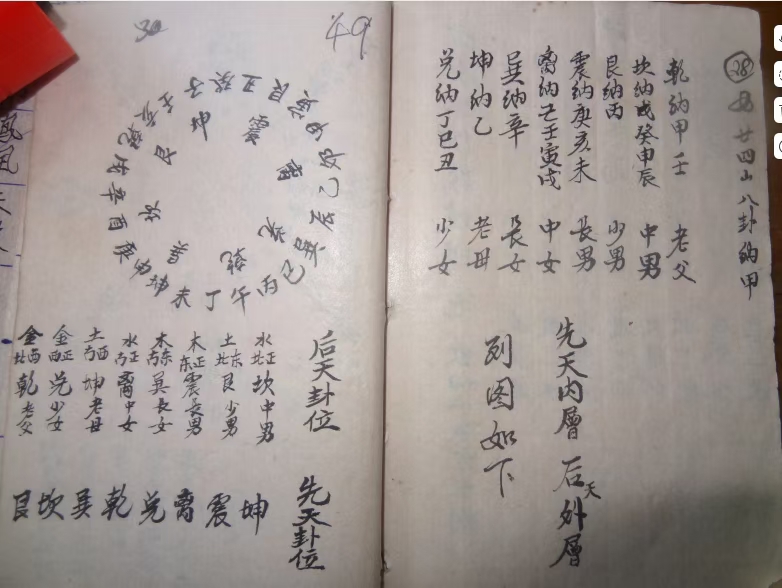 28 廿四山八卦纳甲
乾纳甲壬 老父
坎纳戊癸申辰 中男
艮纳丙 少男
震纳庚亥未 長男
离纳己壬寅戌 中女
巽纳辛 長女
坤纳乙 老母
兑纳丁巳丑 少女
先天内層 后天外層
列图如下
49
30
子癸丑艮寅甲卯乙辰巽巳丙午丁未坤申庚酉辛戌乾亥壬
坤震离兑乾巽坎艮
后天卦位
水正北坎中男
土东北艮少男
木正东震長男
木东南巽長女
水正南离中女
土西南坤老母
金正西兑少女
金西北乾老父
先天卦位
坤
震
离
兑
乾
巽
坎
艮